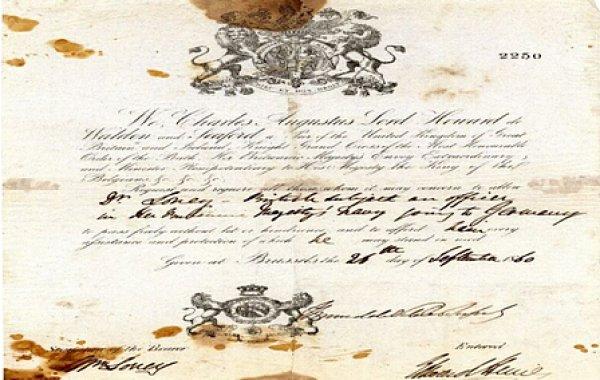 2250
We, Charles Augustus Lord Howard de
Walden and Seaford a Peer of the United Kingdom of Great
Britain and Ireland, Knight Grand Cross of the Most Honourable
Order of the Bath, Her Britannic Majesty's Envoy Extraordinary
and Minister Plenipotentiary to His Majesty the King of the
Belgians &c &c
Request and require all those whom it may concern to allow
Dr Loney - British subject an officer
in Her Britannic Majesty's Navy going to Germany
to pass freely without let or hindrance and to afford him every
assistance and protection of which he may stand in need
Given at Brussels the 26th day of September 1860
Howard de Walden & Seaford
Signature of the Bearer
Entered
Wm Loney